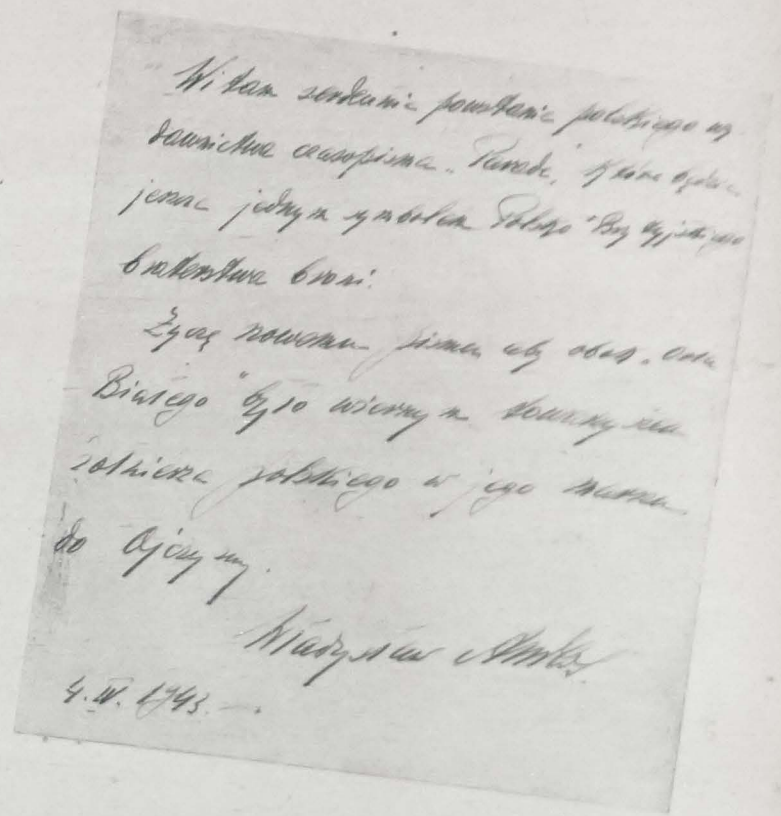 Witam serdecznie powstanie polskiego wy-
dawnictwa czasopisma „Parada", które będzie
jeszcze jednym symbolem Polsko-Brytyjskiego
braterstwa broni.
Życzę nowemu pismu aby obok „Orła
Białego" było wiernym towarzyszem
żołnierza polskiego w jego marszu
do Ojczyzny.
Władysław Anders
4.IV.1943.